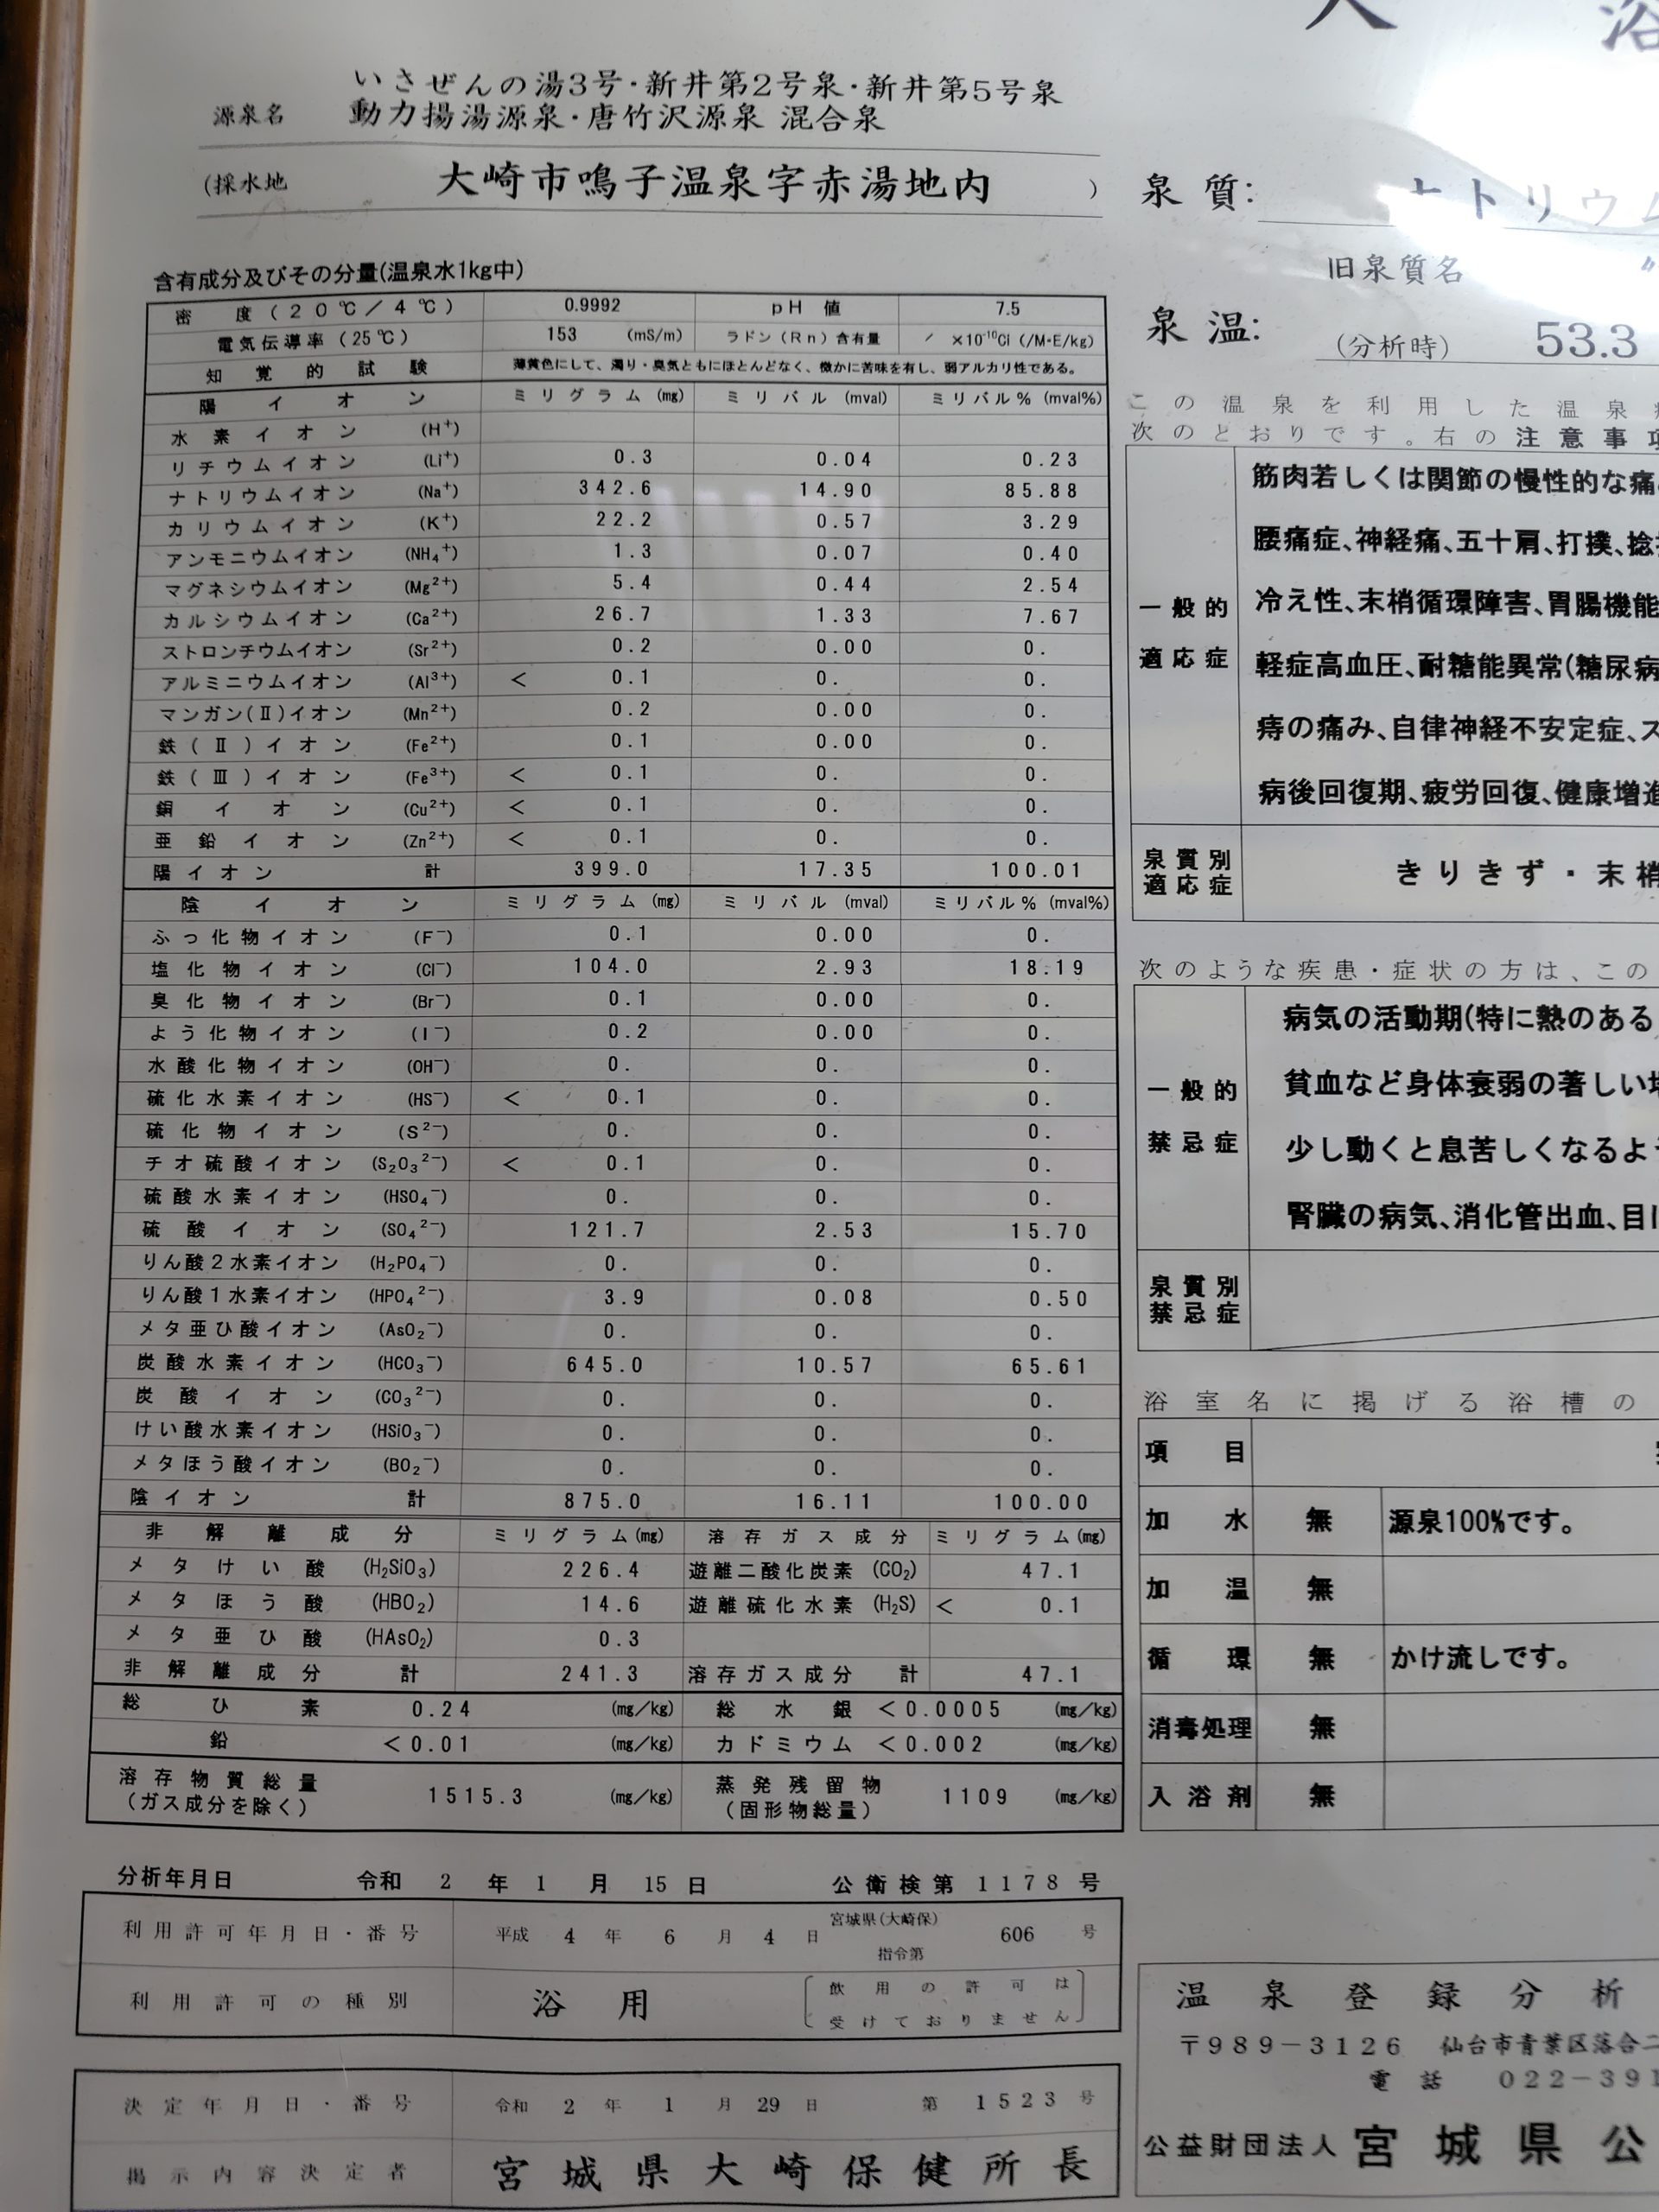 浴
いさぜんの湯3号・新井第2号泉・新井第5号泉
源泉名 動力揚湯源泉・唐竹沢源泉 混合泉
(採水地 大崎市鳴子温泉字赤湯地内 )
含有成分及びその分量(温泉水1kg中)
密度(20℃/4℃) 0.9992 pH値 7.5
電気伝導率(25℃) 153 (mS/m) ラドン(Rn)含有量 / ×10⁻¹⁰Ci (/M・E/kg)
知覚的試験 薄黄色にして、濁り・臭気ともにほとんどなく、微かに苦味を有し、弱アルカリ性である。
陽イオン ミリグラム(mg) ミリバル(mval) ミリバル%(mval%)
水素イオン (H⁺)
リチウムイオン (Li⁺) 0.3 0.04 0.23
ナトリウムイオン (Na⁺) 342.6 14.90 85.88
カリウムイオン (K⁺) 22.2 0.57 3.29
アンモニウムイオン (NH₄⁺) 1.3 0.07 0.40
マグネシウムイオン (Mg²⁺) 5.4 0.44 2.54
カルシウムイオン (Ca²⁺) 26.7 1.33 7.67
ストロンチウムイオン (Sr²⁺) 0.2 0.00 0.
アルミニウムイオン (Al³⁺) < 0.1 0. 0.
マンガン(Ⅱ)イオン (Mn²⁺) 0.2 0.00 0.
鉄(Ⅱ)イオン (Fe²⁺) 0.1 0.00 0.
鉄(Ⅲ)イオン (Fe³⁺) < 0.1 0. 0.
銅イオン (Cu²⁺) < 0.1 0. 0.
亜鉛イオン (Zn²⁺) < 0.1 0. 0.
陽イオン計 399.0 17.35 100.01
陰イオン ミリグラム(mg) ミリバル(mval) ミリバル%(mval%)
ふっ化物イオン (F⁻) 0.1 0.00 0.
塩化物イオン (Cl⁻) 104.0 2.93 18.19
臭化物イオン (Br⁻) 0.1 0.00 0.
よう化物イオン (I⁻) 0.2 0.00 0.
水酸化物イオン (OH⁻) 0. 0. 0.
硫化水素イオン (HS⁻) < 0.1 0. 0.
硫化物イオン (S²⁻) 0. 0. 0.
チオ硫酸イオン (S₂O₃²⁻) < 0.1 0. 0.
硫酸水素イオン (HSO₄⁻) 0. 0. 0.
硫酸イオン (SO₄²⁻) 121.7 2.53 15.70
りん酸2水素イオン (H₂PO₄⁻) 0. 0. 0.
りん酸1水素イオン (HPO₄²⁻) 3.9 0.08 0.50
メタ亜ひ酸イオン (AsO₂⁻) 0. 0. 0.
炭酸水素イオン (HCO₃⁻) 645.0 10.57 65.61
炭酸イオン (CO₃²⁻) 0. 0. 0.
けい酸水素イオン (HSiO₃⁻) 0. 0. 0.
メタほう酸イオン (BO₂⁻) 0. 0. 0.
陰イオン計 875.0 16.11 100.00
非解離成分 ミリグラム(mg) 溶存ガス成分 ミリグラム(mg)
メタけい酸 (H₂SiO₃) 226.4 遊離二酸化炭素 (CO₂) 47.1
メタほう酸 (HBO₂) 14.6 遊離硫化水素 (H₂S) < 0.1
メタ亜ひ酸 (HAsO₂) 0.3
非解離成分計 241.3 溶存ガス成分計 47.1
総ひ素 0.24 (mg/kg) 総水銀 <0.0005 (mg/kg)
鉛 <0.01 (mg/kg) カドミウム <0.002 (mg/kg)
溶存物質総量 (ガス成分を除く) 1515.3 (mg/kg) 蒸発残留物 (固形物総量) 1109 (mg/kg)
分析年月日 令和 2 年 1 月 15 日 公衛検第1178号
利用許可年月日・番号 平成 4 年 6 月 4 日 宮城県(大崎保) 指令第 606 号
利用許可の種別 浴用 〔飲用の許可は受けておりません〕
決定年月日・番号 令和 2 年 1 月 29 日 第 1523 号
掲示内容決定者 宮城県大崎保健所長
泉質: ナトリウム
旧泉質名
泉温: (分析時) 53.3
この温泉を利用した温泉
次のとおりです。右の注意事
一般的適応症
筋肉若しくは関節の慢性的な痛
腰痛症、神経痛、五十肩、打撲、捻
冷え性、末梢循環障害、胃腸機能
軽症高血圧、耐糖能異常(糖尿病
痔の痛み、自律神経不安定症、ス
病後回復期、疲労回復、健康増進
泉質別適応症 きりきず・末梢
次のような疾患・症状の方は、この
一般的禁忌症
病気の活動期(特に熱のある
貧血など身体衰弱の著しい場
少し動くと息苦しくなるよう
腎臓の病気、消化管出血、目に
泉質別禁忌症
浴室名に掲げる浴槽の
項目
加水 無 源泉100%です。
加温 無
循環 無 かけ流しです。
消毒処理 無
入浴剤 無
温泉登録分析
〒989-3126 仙台市青葉区落合二
電話 022-391
公益財団法人 宮城県公